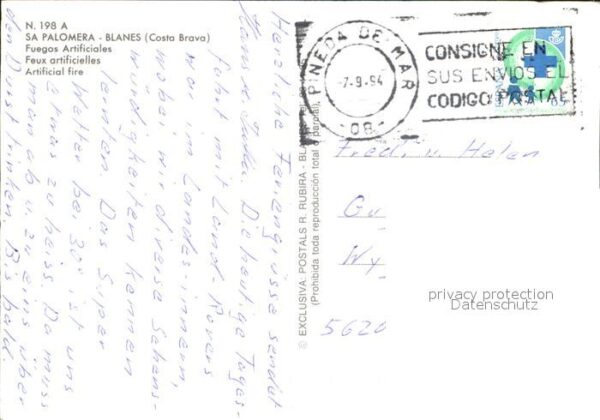 N. 198 A
SA PALOMERA - BLANES (Costa Brava)
Fuegos Artificiales
Feux artificielles
Artificial fire
PINEDA DE MAR
-7-9-94
08
CONSIGNE EN
SUS ENVIOS EL
CODIGO POSTAL
Herzliche Feriengrüsse sendet
Hans Die heutige Tages-
fahrt mit Land-Rovers
war im Landesinnern,
wobei wir diverse Sehens-
würdigkeiten kennen
lernten. Das Super
Wetter bei 30° ist uns
etwas zu heiss. Da muss
man ab u. zu eins über
den Durst trinken. Bis bald.
© EXCLUSIVA: POSTALS R. RUBIRA - BLANES
(Prohibida toda reproducción total o parcial).
Fredi u. Helen
5620
privacy protection
Datenschutz